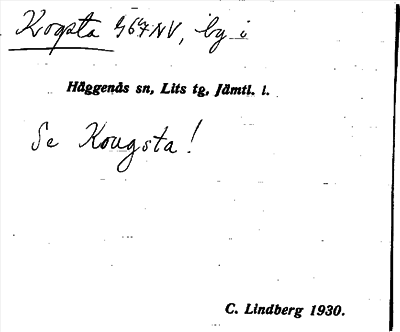 Kogsta 967NV, by i
Häggenås sn, Lits tg, Jämtl. l.
Se Kougsta!
C. Lindberg 1930.